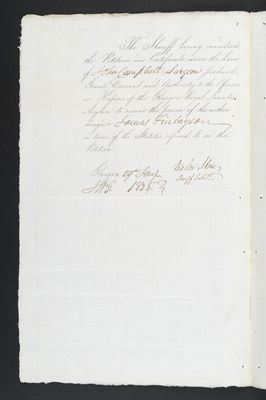 The Sheriff having considered
the Petition and Certificate under the hand
of John Campbell Surgeon produced,
Grants Warrant and Authority to the Officer
or Keeper of the Glasgow Royal Lunatic
Asylum to receive the person of the within
James Finlayson
in terms of the Statutes referred to in the
Petition.
Glasgow 29th
1835